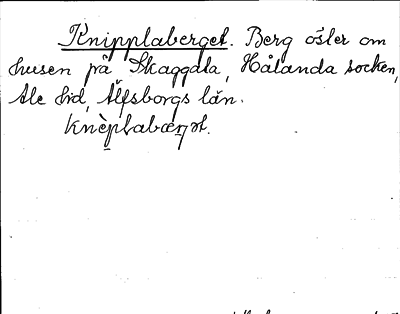 Knipplaberget. Berg öster om
husen på Skaggata, Hålanda socken,
Ale hd, Älfsborgs län.